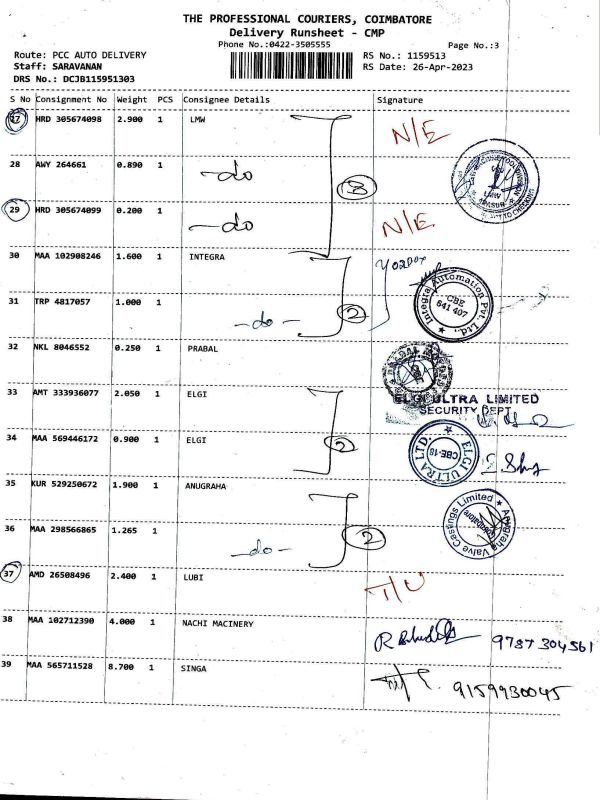 THE PROFESSIONAL COURIERS, COIMBATORE
Delivery Runsheet - CMP
Phone No.:0422-3505555 Page No.:3
Route: PCC AUTO DELIVERY RS No.: 1159513
Staff: SARAVANAN RS Date: 26-Apr-2023
DRS No.: DCJB115951303
S No Consignment No Weight PCS Consignee Details Signature
27 HRD 305674098 2.900 1 LMW N/E
28 AWY 264661 0.890 1 -do 3
LMW
29 HRD 305674099 0.200 1 -do N/E
30 MAA 102908246 1.600 1 INTEGRA
Integral Automation Pvt. Ltd.
CBE
641 407
31 TRP 4817057 1.000 1 -do- 2
32 NKL 8046552 0.250 1 PRABAL
33 AMT 333936077 2.050 1 ELGI
ELGI ULTRA LIMITED
SECURITY DEPT
34 MAA 569446172 0.900 1 ELGI 2
ELGI ULTRA LTD.
CBE-18
35 KUR 529250672 1.900 1 ANUGRAHA
Anugraha Valve Castings Limited
Coimbatore
36 MAA 298566865 1.265 1 -do- 2
37 AMD 26508496 2.400 1 LUBI T/U
38 MAA 102712390 4.000 1 NACHI MACINERY 9787 304561
39 MAA 565711528 8.700 1 SINGA 9159930045